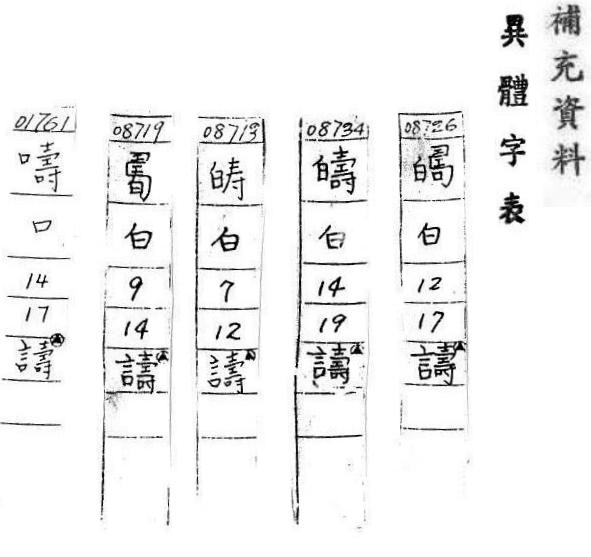 補充資料
異體字表
08726
白
12
17
譸
08734
白
14
19
譸
08713
白
7
12
譸
08719
白
9
14
譸
01761
嚋
口
14
17
譸